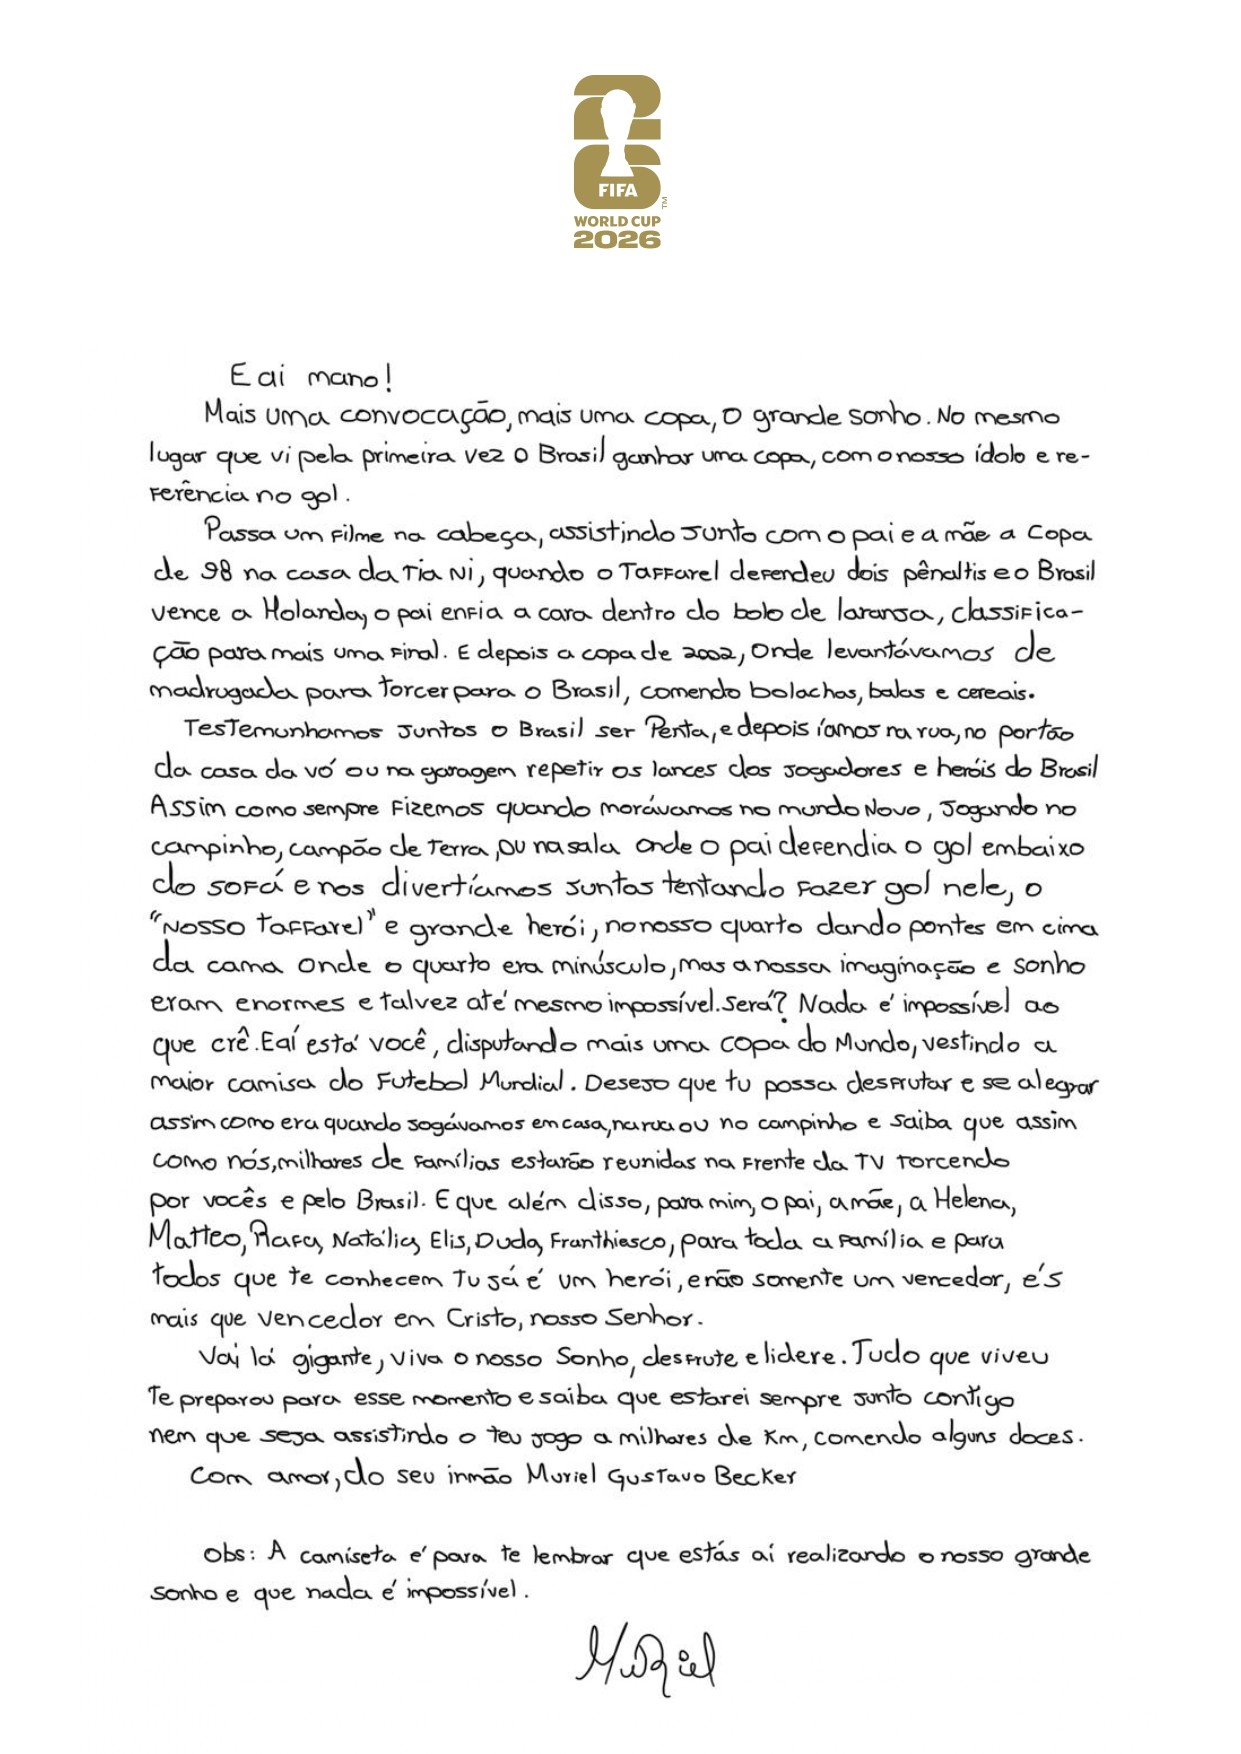 FIFA
TM
WORLD CUP
2026
E ai mano!
Mais uma convocação, mais uma copa, o grande sonho. No mesmo
lugar que vi pela primeira vez o Brasil ganhar uma copa, com o nosso ídolo e re-
ferência no gol.
Passa um filme na cabeça, assistindo junto com o pai e a mãe a Copa
de 98 na casa da Tia Ni, quando o Taffarel defendeu dois pênaltis e o Brasil
vence a Holanda, o pai enfia a cara dentro do bolo de laranja, classifica-
ção para mais uma final. E depois a copa de 2002, onde levantávamos de
madrugada para torcer para o Brasil, comendo bolachas, balas e cereais.
Testemunhamos juntos o Brasil ser Penta, e depois íamos na rua, no portão
da casa da vó ou na garagem repetir os lances dos jogadores e heróis do Brasil
Assim como sempre fizemos quando morávamos no mundo Novo, jogando no
campinho, campão de terra, ou na sala onde o pai defendia o gol embaixo
do sofá e nos divertíamos juntos tentando fazer gol nele, o
"Nosso Taffarel" e grande herói, no nosso quarto dando pontes em cima
da cama onde o quarto era minúsculo, mas a nossa imaginação e sonho
eram enormes e talvez até mesmo impossível. Será? Nada é impossível ao
que crê. E aí está você, disputando mais uma copa do Mundo, vestindo a
maior camisa do Futebol Mundial. Desejo que tu possa desfrutar e se alegrar
assim como era quando jogávamos em casa, na rua ou no campinho e saiba que assim
como nós, milhares de famílias estarão reunidas na frente da TV torcendo
por vocês e pelo Brasil. E que além disso, para mim, o pai, a mãe, a Helena,
Matteo, Rafa, Natália, Elis, Duda, Franthiesco, para toda a família e para
todos que te conhecem tu já é um herói, e não somente um vencedor, é's
mais que vencedor em Cristo, nosso Senhor.
Vai lá gigante, viva o nosso Sonho, desfrute e lidere. Tudo que viveu
te preparou para esse momento e saiba que estarei sempre junto contigo
nem que seja assistindo o teu jogo a milhares de Km, comendo alguns doces.
Com amor, do seu irmão Muriel Gustavo Becker
Obs: A camiseta é para te lembrar que estás aí realizando o nosso grande
sonho e que nada é impossível.
Muriel